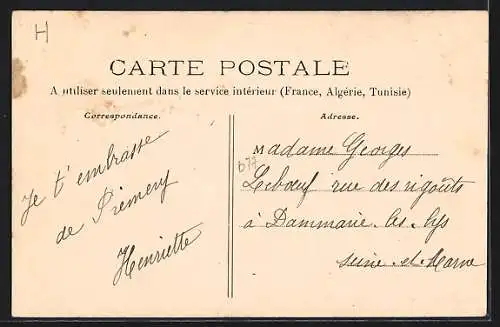 H
CARTE POSTALE
A utiliser seulement dans le service intérieur (France, Algérie, Tunisie)
Correspondance.
Je t'embrasse
de Prémery
Henriette
Adresse.
Madame Georges
Leboeuf rue des rigoûts
à Dammarie les lys
Seine-et-Marne